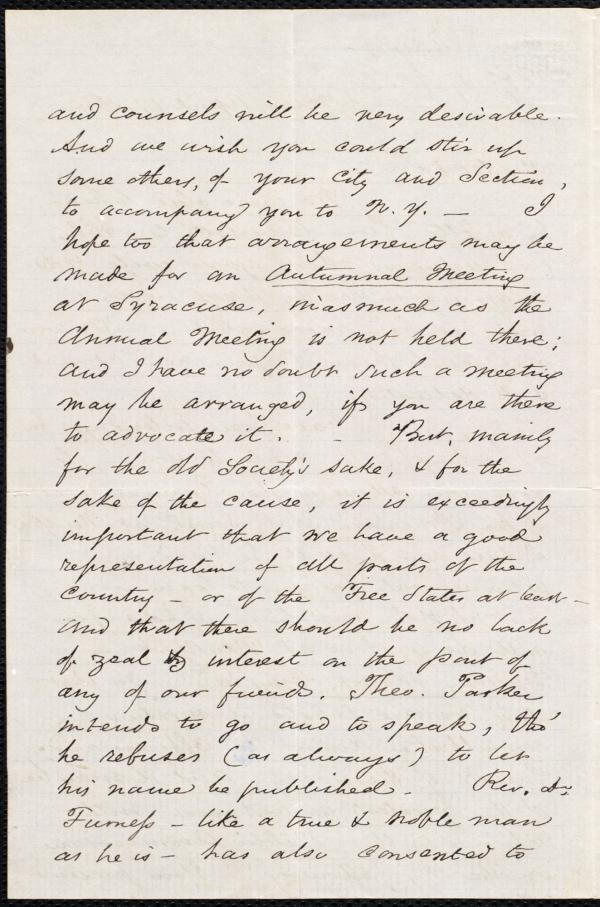 and counsels will be very desirable.
And we wish you could stir up
some others, of your City and Section,
to accompany you to N.Y. — I
hope too that arrangements may be
made for an Autumnal Meeting
at Syracuse, inasmuch as the
Annual Meeting is not held there;
and I have no doubt such a meeting
may be arranged, if you are there
to advocate it. - But, mainly
for the old Society's sake, & for the
sake of the cause, it is exceedingly
important that we have a good
representation of all parts of the
Country - or of the Free States at least -
and that there should be no lack
of zeal interest on the part of
any of our friends. Theo. Parker
intends to go and to speak, tho'
he refuses (as always) to let
his name be published. Rev. Dr
Furness - like a true & noble man
as he is - has also consented to